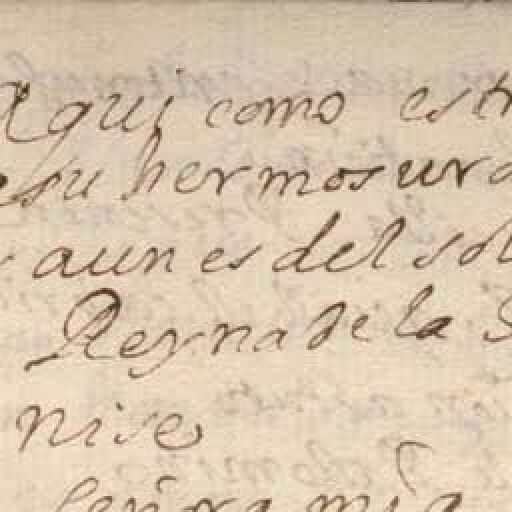 Aqui como estr
esu hermosura
aun es del sol
Reyna de la
nise
señora mia